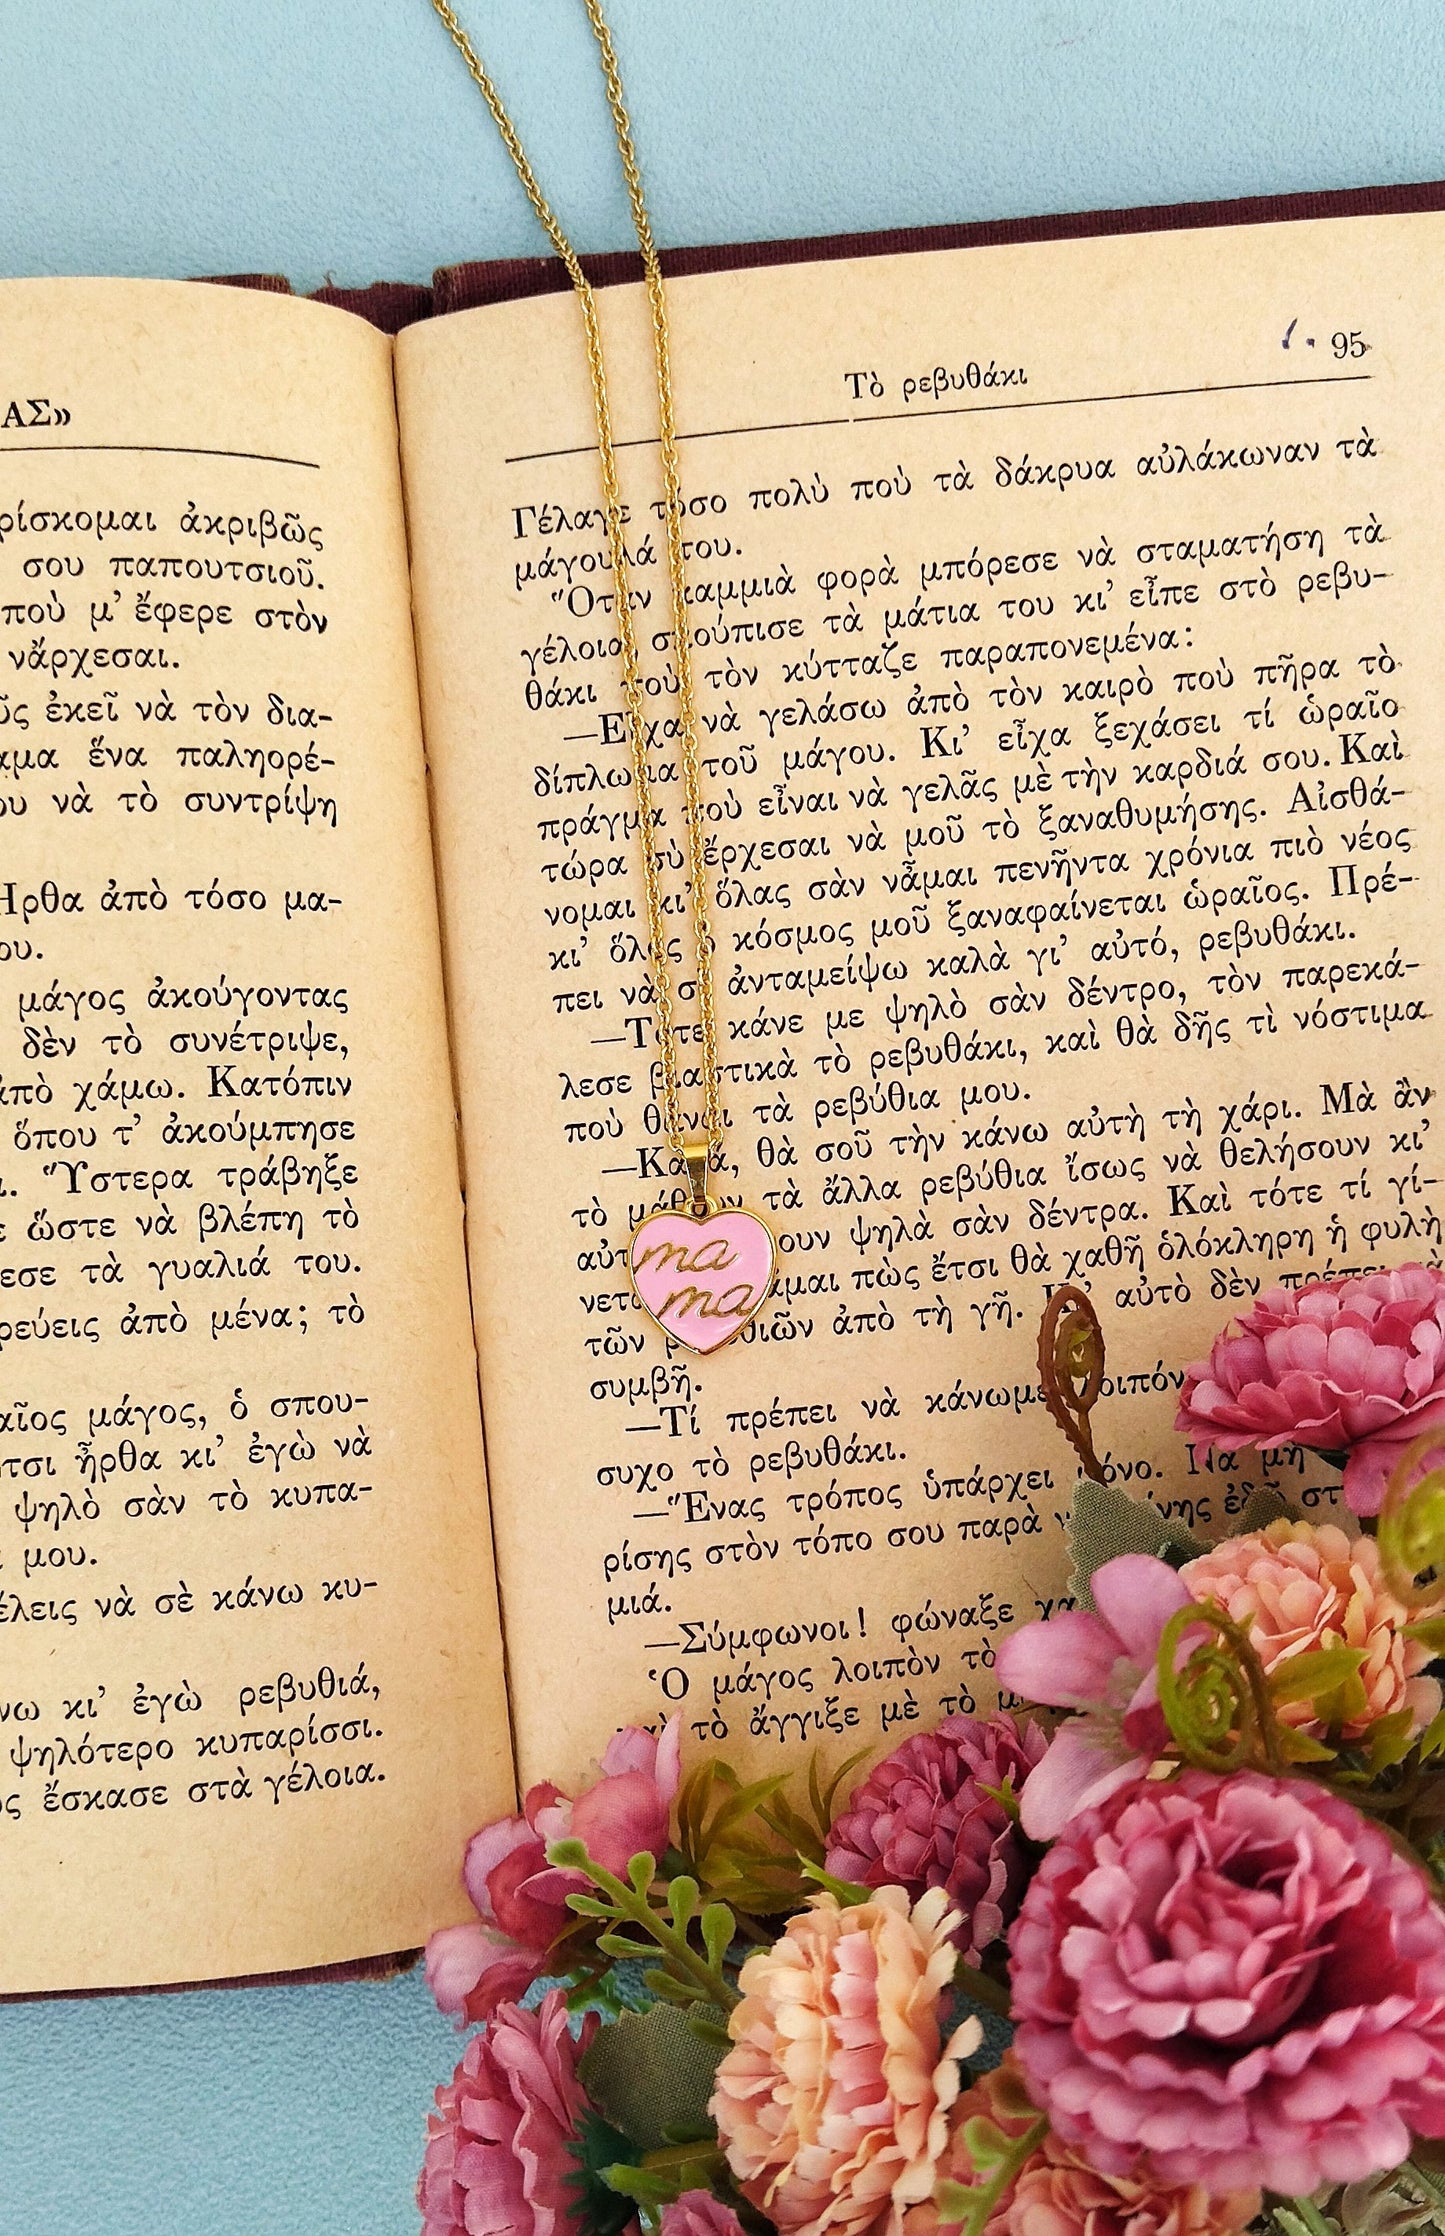 ΑΣ»
ἀκριβῶς
σου παπουτσιοῦ.
ποὺ μ’ ἔφερε στὸν
νἄρχεσαι.
ἐκεῖ νὰ τὸν δια-
ἕνα παληορέ-
νὰ τὸ συντρίψη
ἀπὸ τόσο μα-
μάγος ἀκούγοντας
δὲν τὸ συνέτριψε,
χάμω. Κατόπιν
ὅπου τ’ ἀκούμπησε
Ὕστερα τράβηξε
ὥστε νὰ βλέπη τὸ
τὰ γυαλιά του.
ἀπὸ μένα; τὸ
μάγος, ὁ σπου-
ἦρθα κι’ ἐγὼ νὰ
ψηλὸ σὰν τὸ κυπα-
μου.
νὰ σὲ κάνω κυ-
κι’ ἐγὼ ρεβυθιά,
ψηλότερο κυπαρίσσι.
ἔσκασε στὰ γέλοια.
Τὸ ρεβυθάκι
95
Γέλαγε τόσο πολὺ ποὺ τὰ δάκρυα αὐλάκωναν τὰ
μάγουλά του.
Ὅταν καμμιὰ φορὰ μπόρεσε νὰ σταματήση τὰ
γέλοια, σκούπισε τὰ μάτια του κι’ εἶπε στὸ ρεβυ-
θάκι ποὺ τὸν κύτταζε παραπονεμένα:
—Εἶχα νὰ γελάσω ἀπὸ τὸν καιρὸ ποὺ πῆρα τὸ
δίπλωμα τοῦ μάγου. Κι’ εἶχα ξεχάσει τί ὡραῖο
πράγμα ποὺ εἶναι νὰ γελᾶς μὲ τὴν καρδιά σου. Καὶ
τώρα σὺ ἔρχεσαι νὰ μοῦ τὸ ξαναθυμήσης. Αἰσθά-
νομαι κι’ ὅλας σὰν νἆμαι πενῆντα χρόνια πιὸ νέος
κι’ ὅλος ὁ κόσμος μοῦ ξαναφαίνεται ὡραῖος. Πρέ-
πει νὰ σ’ ἀνταμείψω καλὰ γι’ αὐτό, ρεβυθάκι.
—Τότε κάνε με ψηλὸ σὰν δέντρο, τὸν παρεκά-
λεσε βιαστικὰ τὸ ρεβυθάκι, καὶ θὰ δῆς τὶ νόστιμα
ποὺ θἆναι τὰ ρεβύθια μου.
—Καλά, θὰ σοῦ τὴν κάνω αὐτὴ τὴ χάρι. Μὰ ἂν
τὸ μάθουν τὰ ἄλλα ρεβύθια ἴσως νὰ θελήσουν κι’
ψηλὰ σὰν δέντρα. Καὶ τότε τί γί-
πὼς ἔτσι θὰ χαθῆ ὁλόκληρη ἡ φυλὴ
τῶν ἀπὸ τὴ γῆ. Κι’ αὐτὸ δὲν πρέπει νὰ
συμβῆ.
—Τί πρέπει νὰ κάνωμε λοιπόν
συχο τὸ ρεβυθάκι.
—Ἕνας τρόπος ὑπάρχει μόνο. Νὰ μὴ
ρίσης στὸν τόπο σου παρὰ ἐδῶ
μιά.
—Σύμφωνοι! φώναξε
Ὁ μάγος λοιπὸν τὸ
τὸ ἄγγιξε μὲ τὸ
ma
ma